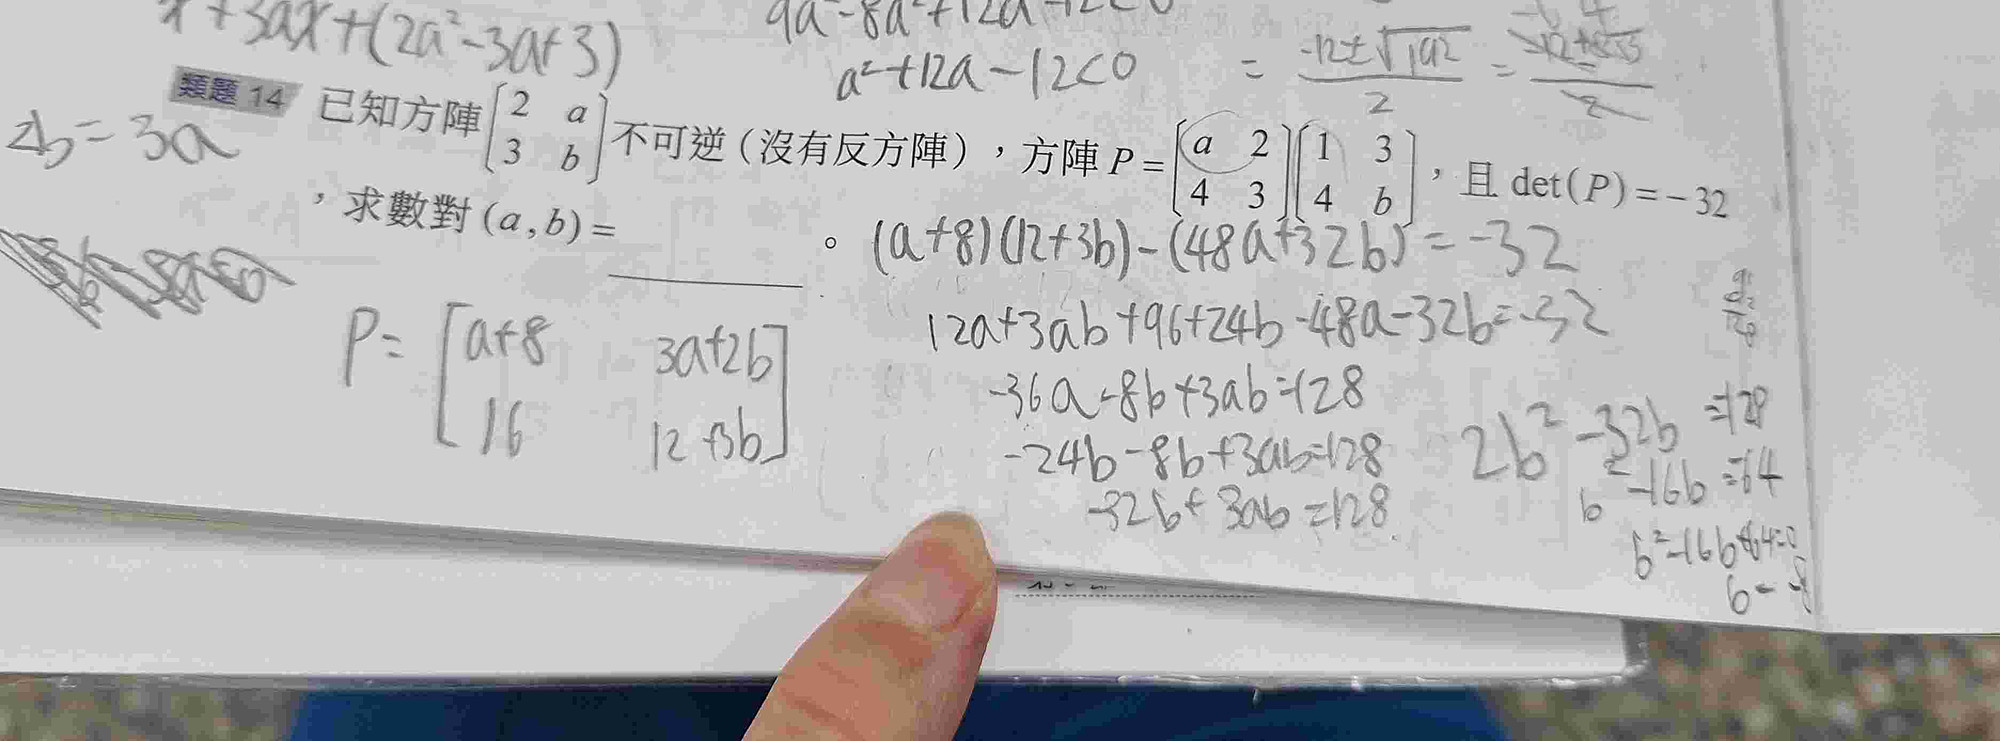 x+3ax+(2a²-3a+3)
9a²-8a²+12a-12<0
a²+12a-12<0
= -12±√192 / 2 =
類題 14 已知方陣 [2 a; 3 b] 不可逆（沒有反方陣），方陣 P = [a 2; 4 3] [1 3; 4 b]，且 det(P) = -32
，求數對 (a, b) = ＿＿＿＿。
2b=3a
(a+8)(12+3b)-(48a+32b)=-32
P= [a+8 3a+2b; 16 12+3b]
12a+3ab+96+24b-48a-32b=-32
-36a-8b+3ab=-128
-24b-8b+3ab=-128
-32b+3ab=-128
2b²-32b=-128
b²-16b=-64
b²-16b+64=0